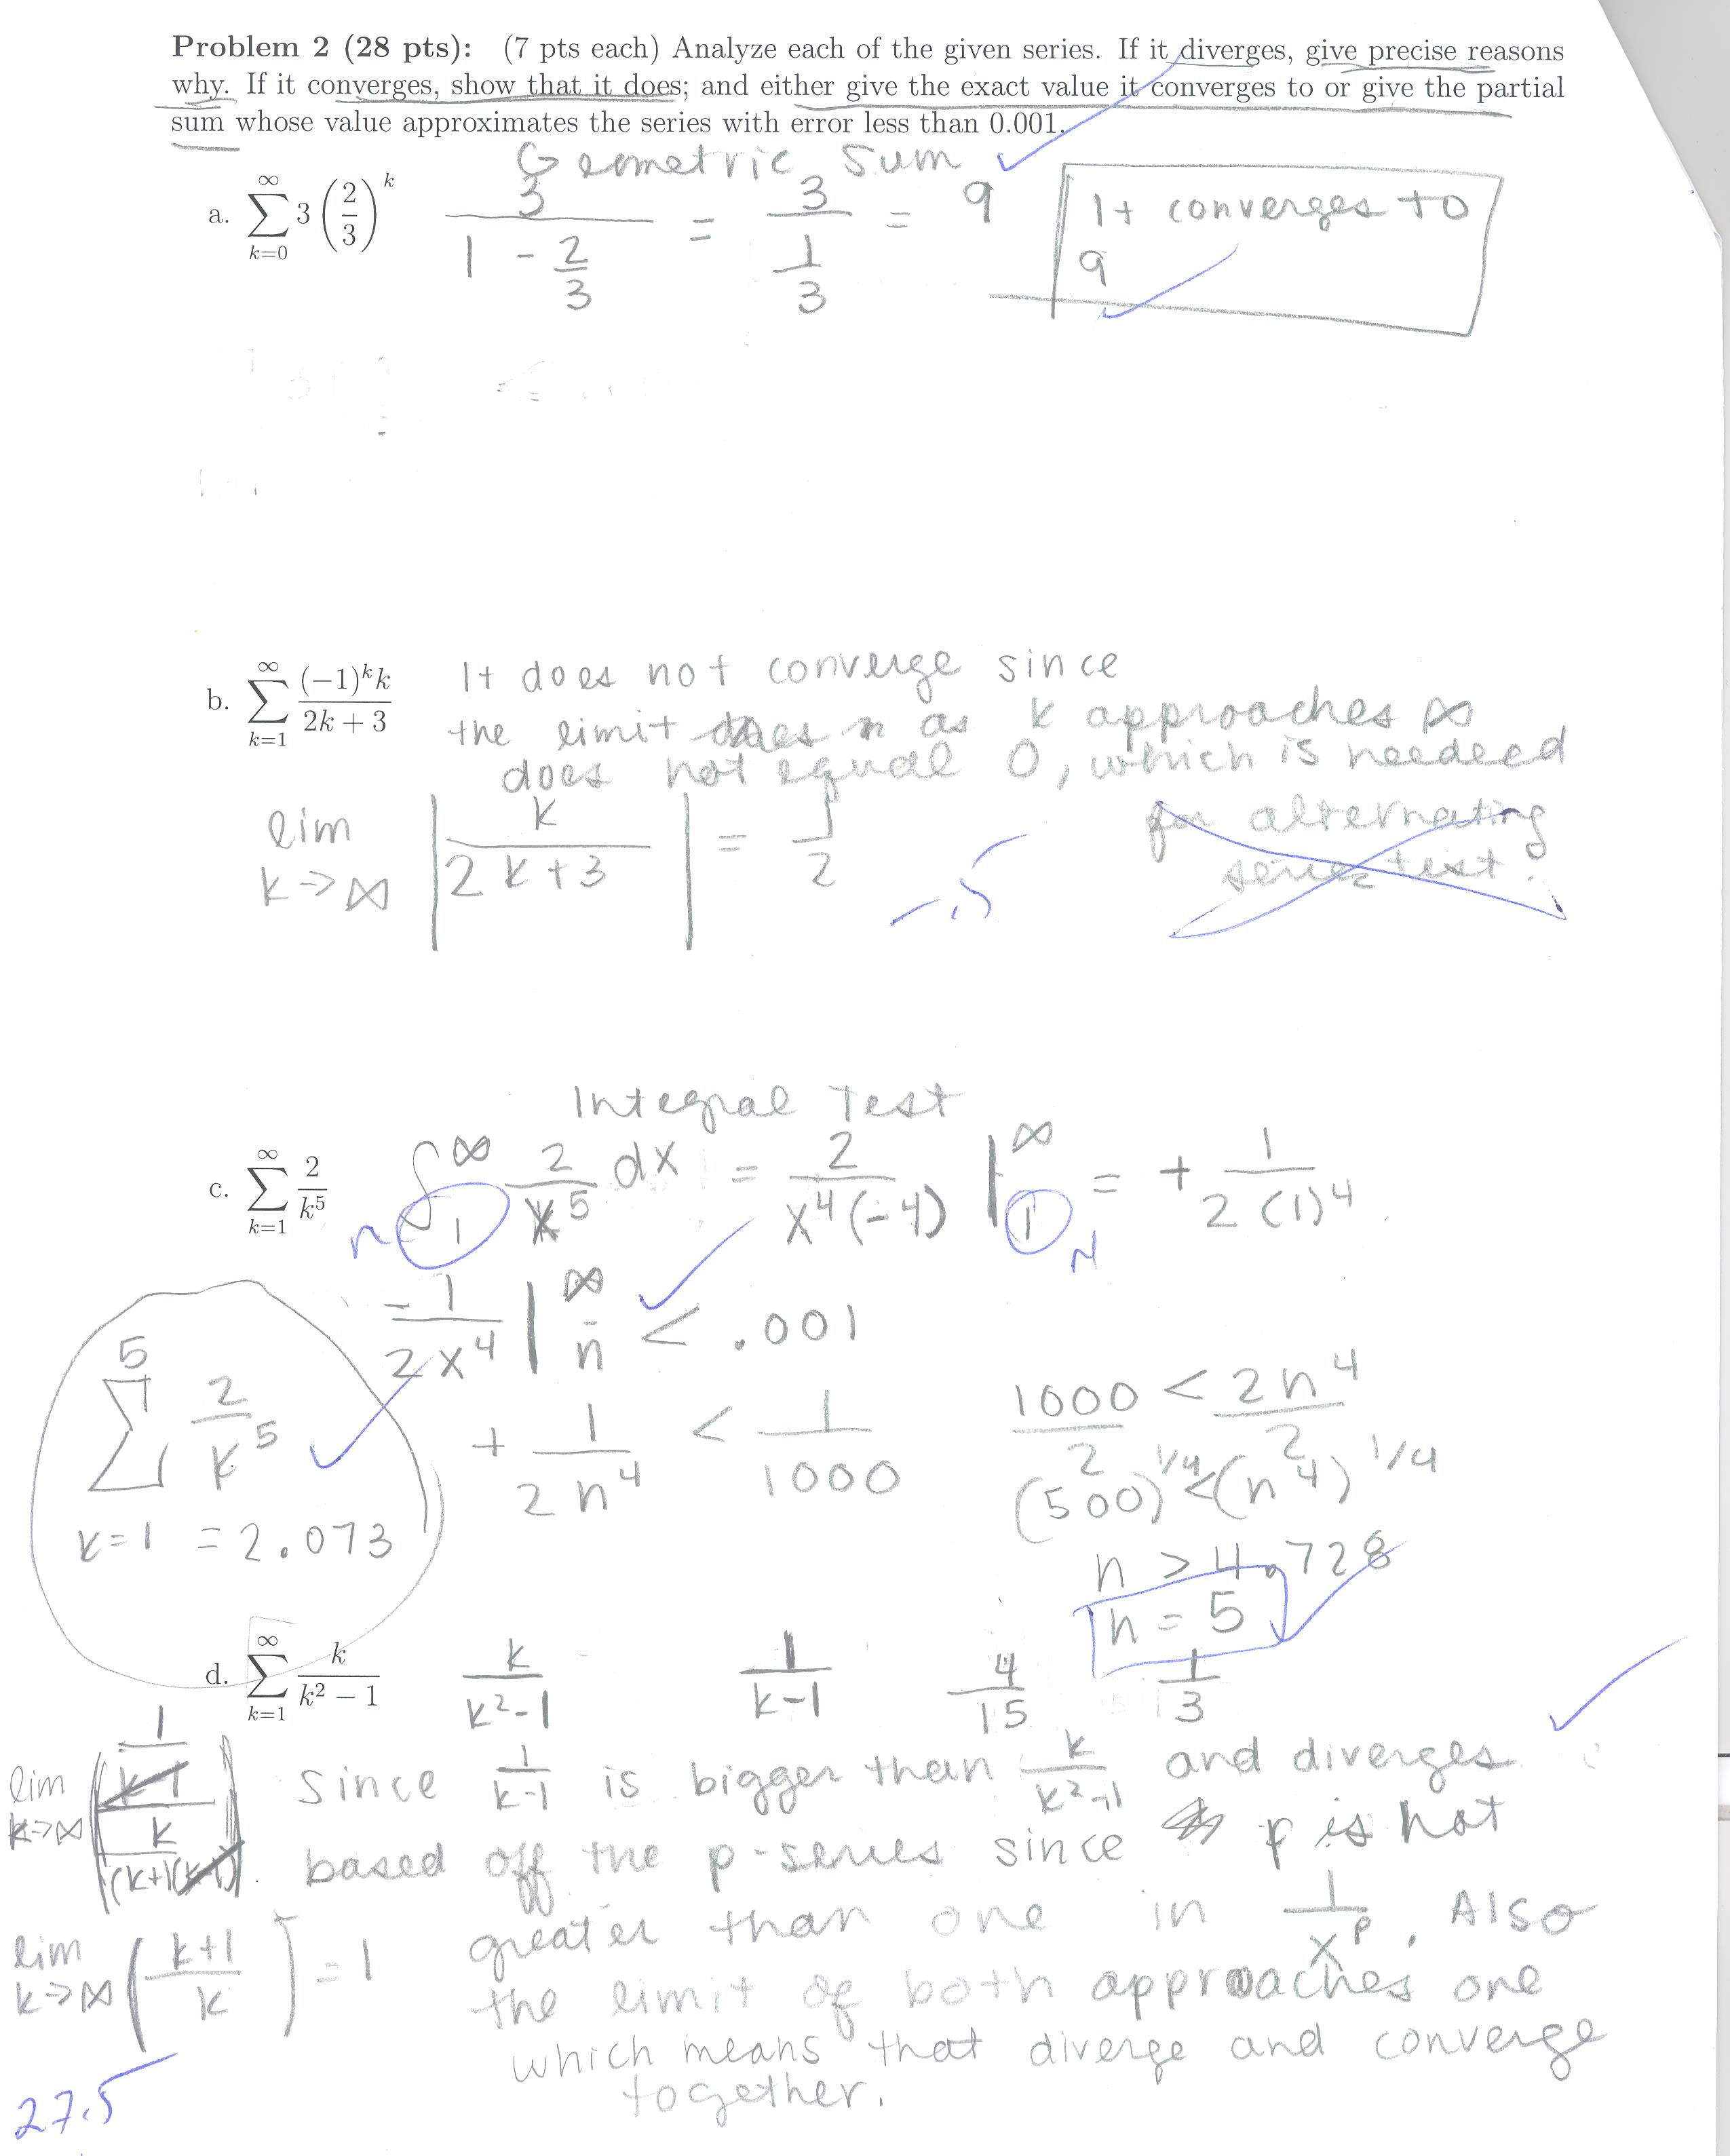 Problem 2 (28 pts): (7 pts each) Analyze each of the given series. If it diverges, give precise reasons
why. If it converges, show that it does; and either give the exact value it converges to or give the partial
sum whose value approximates the series with error less than 0.001.
Geometric Sum
a. ∑_{k=0}^{∞} 3 (2/3)^k   3/(1 - 2/3) = 3/(1/3) = 9   It converges to
9
b. ∑_{k=1}^{∞} (−1)^k k/(2k + 3)   It does not converge since
the limit as k approaches ∞
does not equal 0, which is needeed
for alternating
series test.
lim_{k→∞} |k/(2k+3)| = 1/2
-.5
Integral Test
c. ∑_{k=1}^{∞} 2/k^5   ∫_1^∞ 2/x^5 dx = 2/(x^4(-4)) |_1^∞ = + 1/(2(1)^4)
n   N
-1/(2x^4) |_n^∞ < .001
+ 1/(2n^4) < 1/1000
1000/2 < 2n^4/2
(500)^{1/4} < (n^4)^{1/4}
n > 4.728
n = 5
∑_{k=1}^{5} 2/k^5 = 2.073
d. ∑_{k=1}^{∞} k/(k^2 − 1)   k/(k^2-1)   1/(k-1)   4/15   1/3
lim_{k→∞} ((1/(k-1))/(k/((k+1)(k-1))))
lim_{k→∞} ((k+1)/k) = 1
Since 1/(k-1) is bigger than k/(k^2-1) and diverges
based off the p-series since p is not
greater than one in 1/x^p. Also
the limit of both approaches one
which means that diverge and converge
together.
27.5